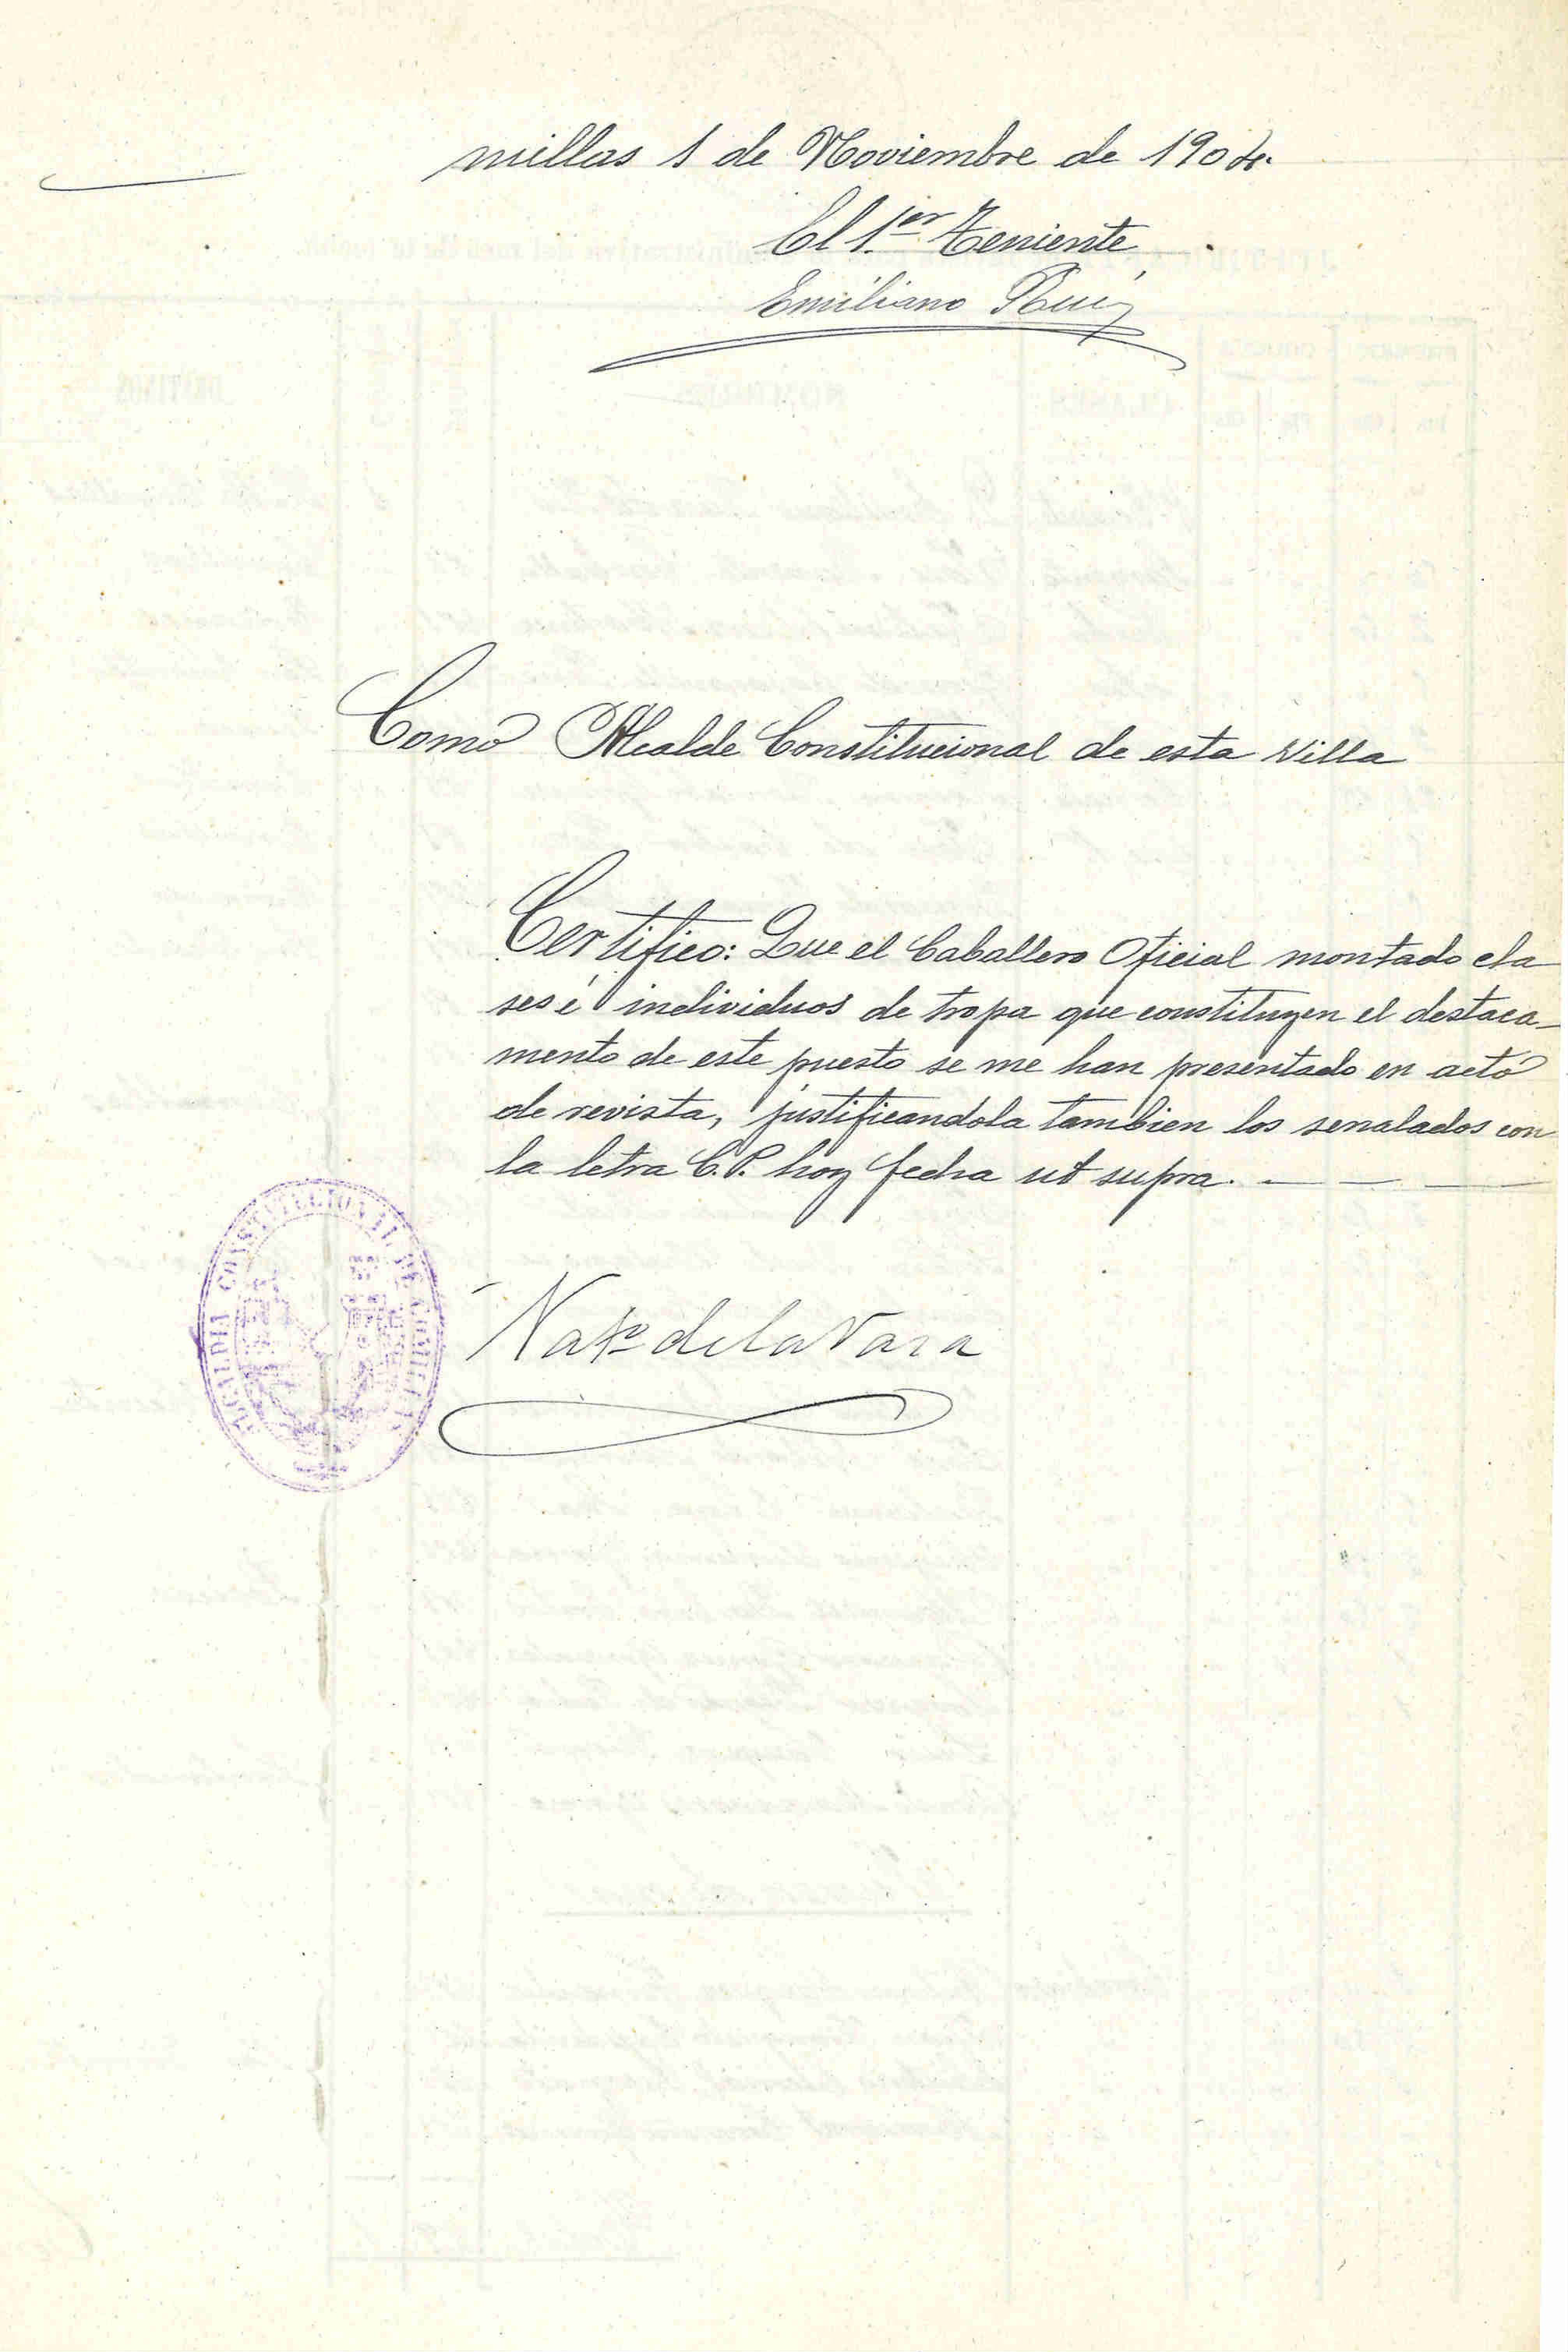 millas 1 de Noviembre de 1904.
El 1.er Teniente,
Emiliano Ruiz
Como Alcalde Constitucional de esta Villa
Certifico: Que el Caballero Oficial montado cla
ses é individuos de tropa que constituyen el destaca-
mento de este puesto se me han presentado en acto
de revista, justificandola tambien los senalados con
la letra C.P. hoy fecha ut supra.
ALCALDIA CONSTITUCIONAL DE COMILLAS
de la Vara